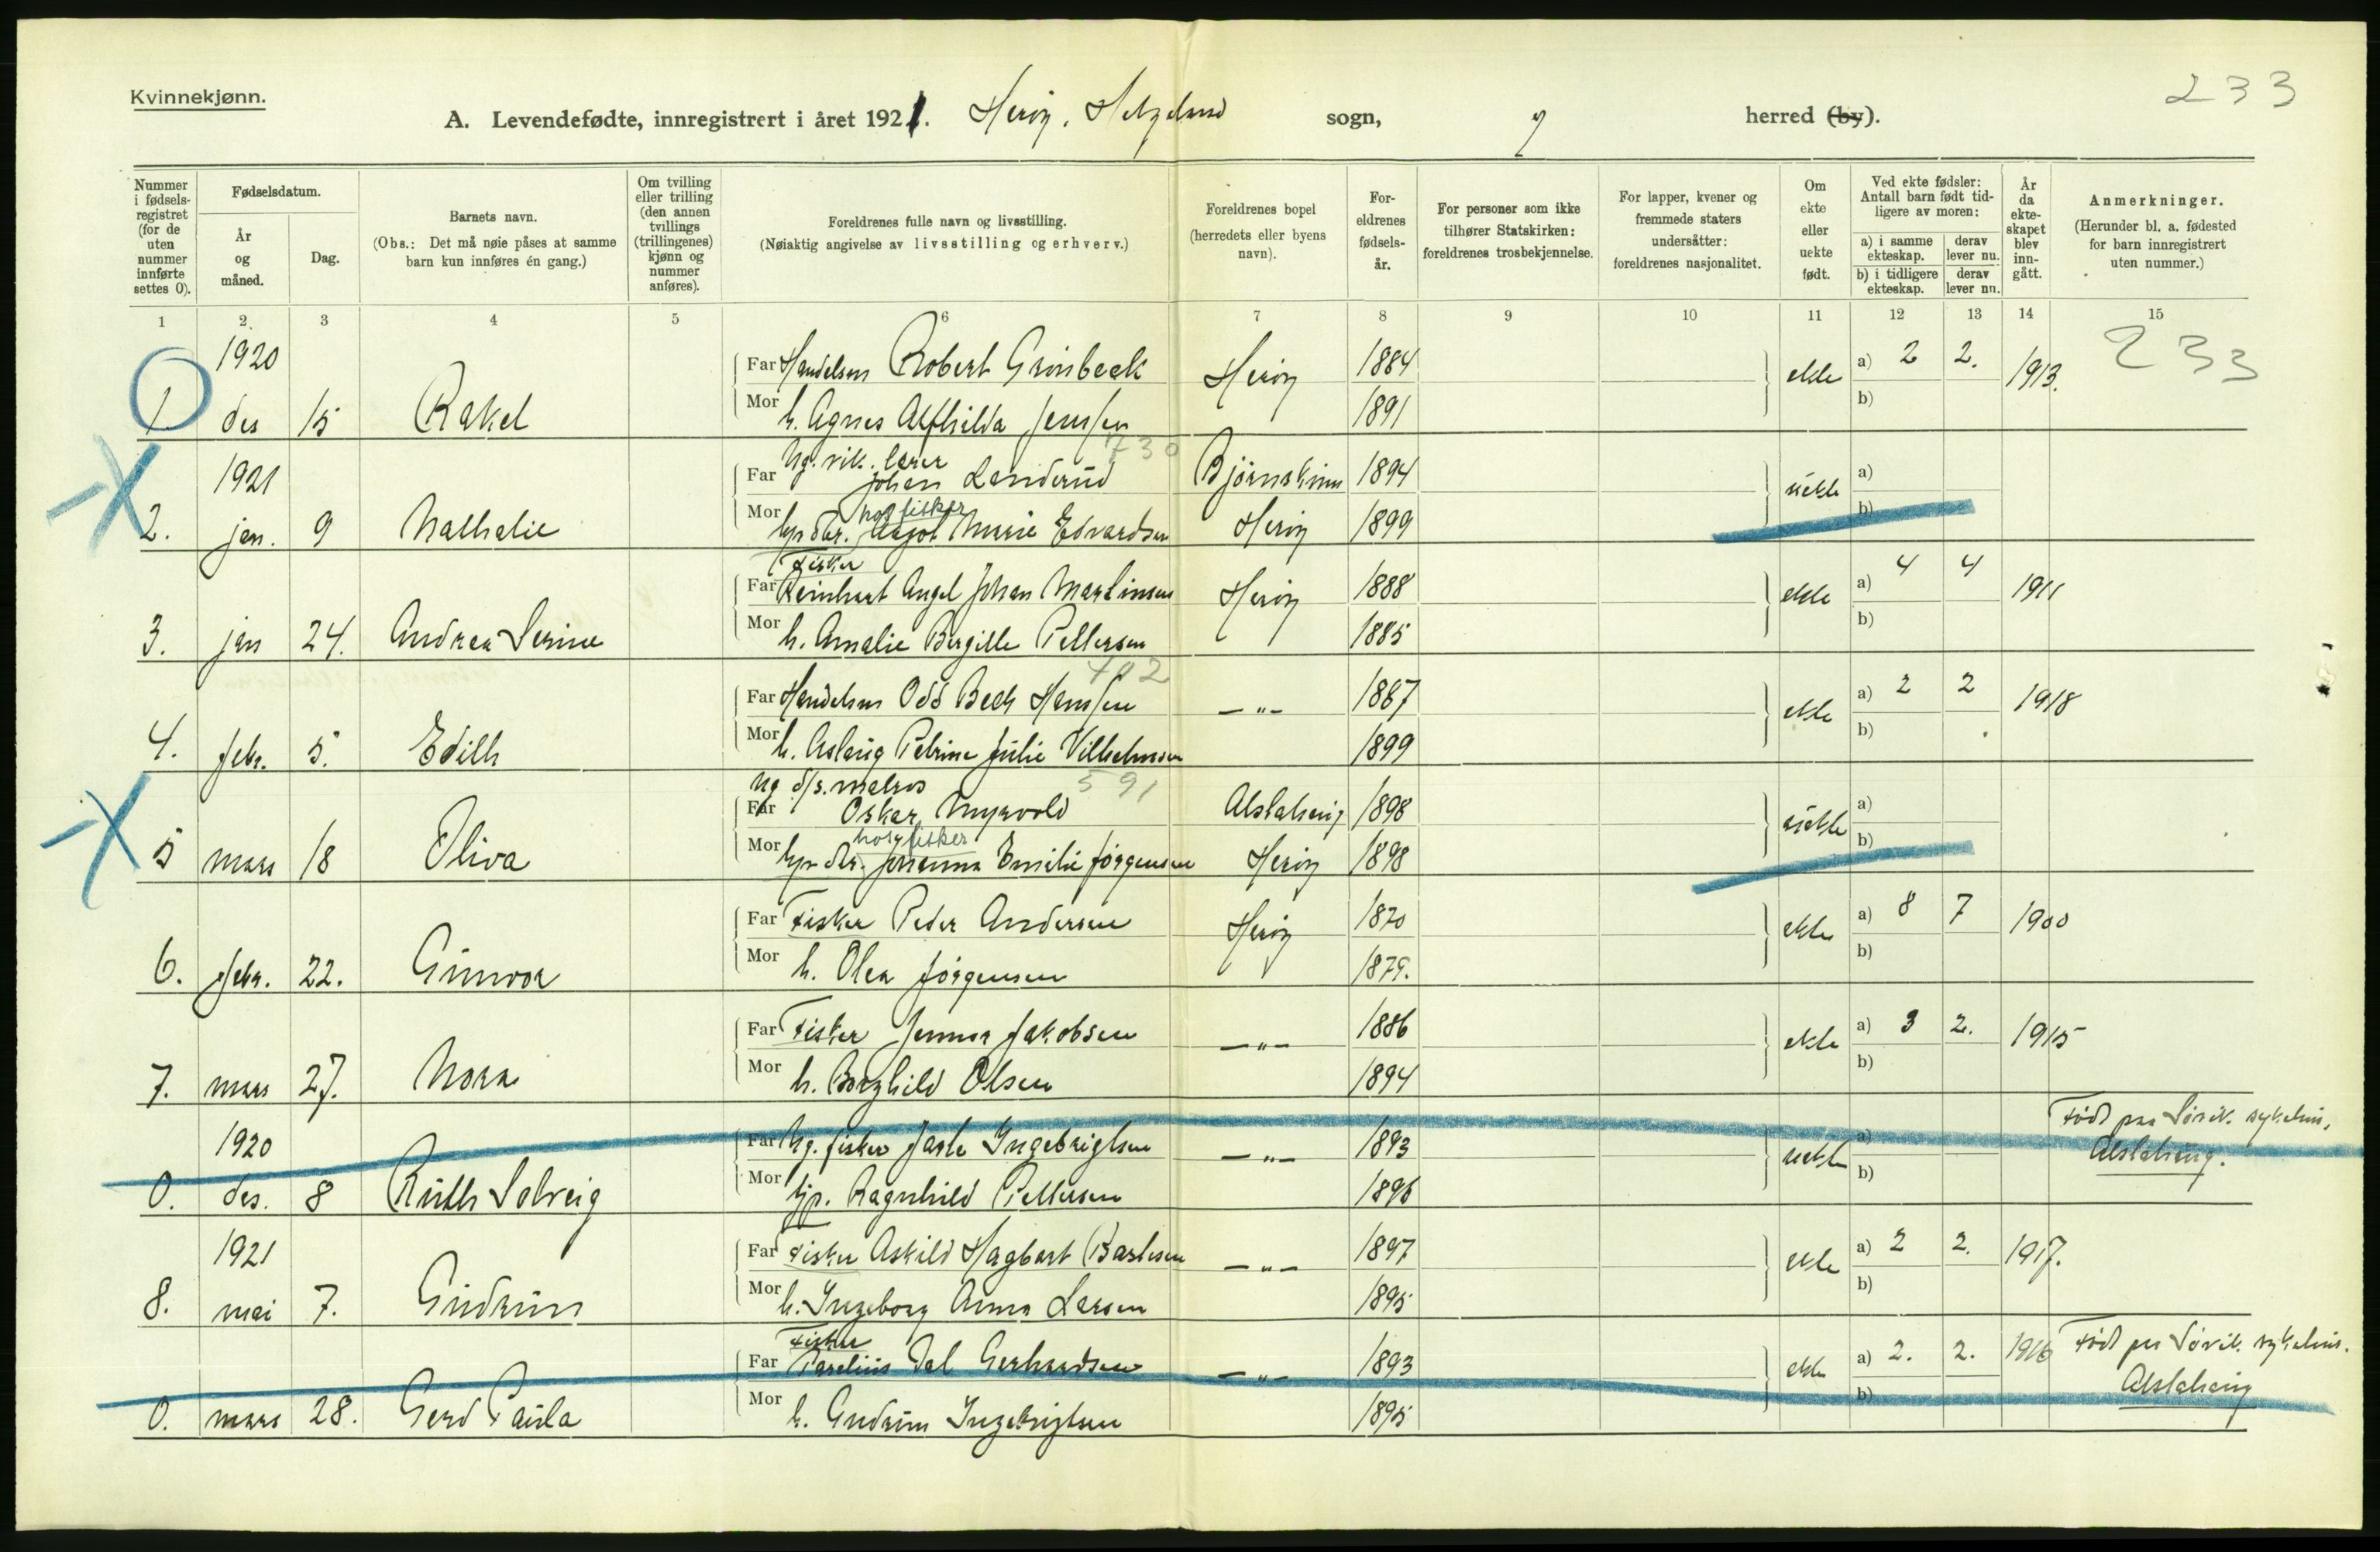 Kvinnekjønn.
233
A. Levendefødte, innregistrert i året 1921. Herøy, Helgeland sogn, herred (by).
Nummer i fødselsregistret (for de uten nummer innførte settes 0).
Fødselsdatum.
År og måned.
Dag.
Barnets navn.
(Obs.: Det må nøie påses at samme barn kun innføres én gang.)
Om tvilling eller trilling (den annen tvillings (trillingenes) kjønn og nummer anføres).
Foreldrenes fulle navn og livsstilling.
(Nøiaktig angivelse av livsstilling og erhverv.)
Foreldrenes bopel (herredets eller byens navn).
Foreldrenes fødselsår.
For personer som ikke tilhører Statskirken: foreldrenes trosbekjennelse.
For lapper, kvener og fremmede staters undersåtter: foreldrenes nasjonalitet.
Om ekte eller uekte født.
Ved ekte fødsler: Antall barn født tidligere av moren:
a) i samme ekteskap. derav lever nu.
b) i tidligere ekteskap. derav lever nu.
År da ekteskapet blev inngått.
Anmerkninger.
(Herunder bl. a. fødested for barn innregistrert uten nummer.)
1 2 3 4 5 6 7 8 9 10 11 12 13 14 15
1920 Far Handelsm Robert Grønbeck Herøy 1884 ekte a) 2 2. 1913. 233
1 des 15 Rakel Mor h. Agnes Alfhilda Jenssen 1891 b)
730
1921 Ug. vik. lærer
Far Johan Landerud Bjørnskinn 1894 uekte a)
hos fisker
2. jan. 9 Nathalie Mor Marie Edvardsen Herøy 1899 b)
Fisker
Far Reinhart Angel Johan Martinsen Herøy 1888 ekte a) 4 4 1911
3. jan 24. Andrea Serine Mor h. Amalie Bergitte Pettersen 1885 b)
402
Far Handelsm Odd Bech Hanssen —"— 1887 ekte a) 2 2 1918
4. febr. 5. Edith Mor h. Aslaug Petrine Julie Vilhelmsen 1899 b)
Ug d/s. matros 591
Far Oskar Myrvold Alstahaug 1898 uekte a)
hos fisker
5 mars 18 Oliva Mor Johanna Emilie Jørgensen Herøy 1898 b)
Far Fisker Peder Andersen Herøy 1870 ekte a) 8 7 1900
6. febr. 22. Gunvor Mor h. Olea Jørgensen 1879. b)
Far Fisker Jakobsen —"— 1886 ekte a) 3 2. 1915
7. mars 27. Nora Mor h. Borghild Olsen 1894 b)
Født paa Sørvik. sykehus,
1920 Far Ug. fisker Jarle Ingebrigtsen —"— 1893 uekte a) Alstahaug.
0. des. 8 Ruth Solveig Mor Ragnhild Pettersen 1896 b)
1921 Far Fisker Askild Hagbart —"— 1897 ekte a) 2 2. 1917.
8. mai 7. Gudrun Mor h. Ingeborg Anna Larsen 1895 b)
Fisker
Far Dal Gerhardsen —"— 1893 ekte a) 2. 2. 1916 Født paa Sørvik. sykehus.
0. mars 28. Gerd Paula Mor h. Gudrun Ingebrigtsen 1895 b) Alstahaug